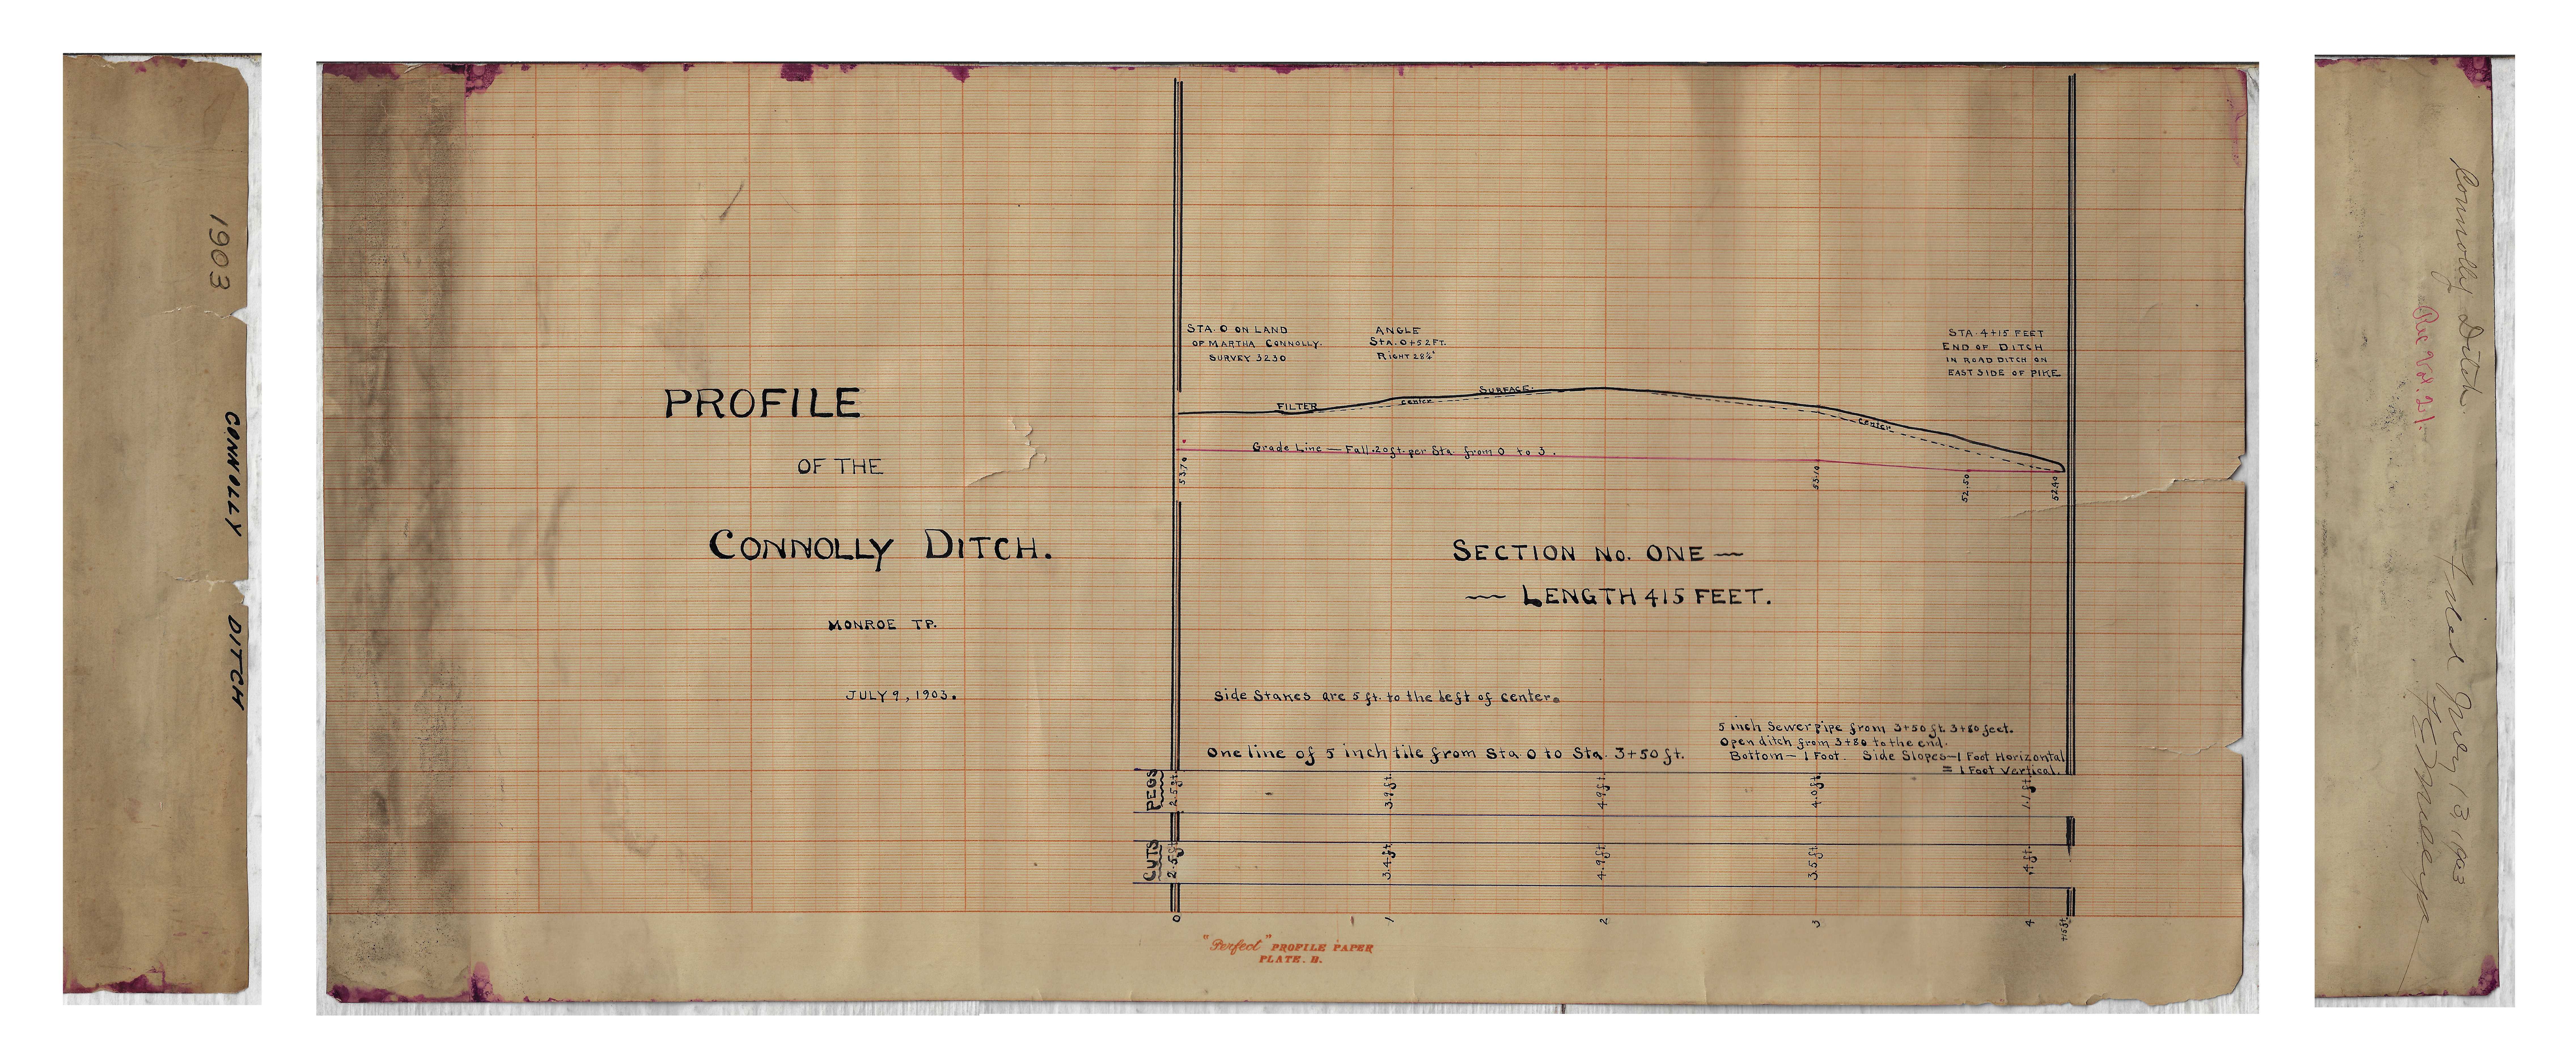 1903
CONNOLLY DITCH
PROFILE
OF THE
CONNOLLY DITCH.
MONROE TP.
JULY 9, 1903.
STA. 0 ON LAND
OF MARTHA CONNOLLY.
SURVEY 3230
ANGLE
STA. 0+52 FT.
RIGHT 28¾°
STA. 4+15 FEET
END OF DITCH
IN ROAD DITCH ON
EAST SIDE OF PIKE
FILTER
center
SURFACE.
center
Grade Line — Fall .20 ft. per Sta. from 0 to 3.
53.70
53.10
52.50
52.40
SECTION No. ONE —
— LENGTH 415 FEET.
Side Stakes are 5 ft. to the left of center.
One line of 5 inch tile from Sta. 0 to Sta. 3+50 ft.
5 inch Sewer pipe from 3+50 ft. 3+80 feet.
Open ditch from 3+80 to the end.
Bottom — 1 Foot. Side Slopes — 1 Foot Horizontal
= 1 Foot Vertical.
PEGS 2.5 ft. 3.9 ft. 4.9 ft. 4.0 ft. 1.1 ft.
CUTS 2.5 ft. 3.4 ft. 4.9 ft. 3.5 ft. .4 ft.
0 1 2 3 4 +15 ft.
"Perfect" PROFILE PAPER
PLATE. B.
Connolly Ditch.
Rec Vol. 21.
Filed July 13, 1903